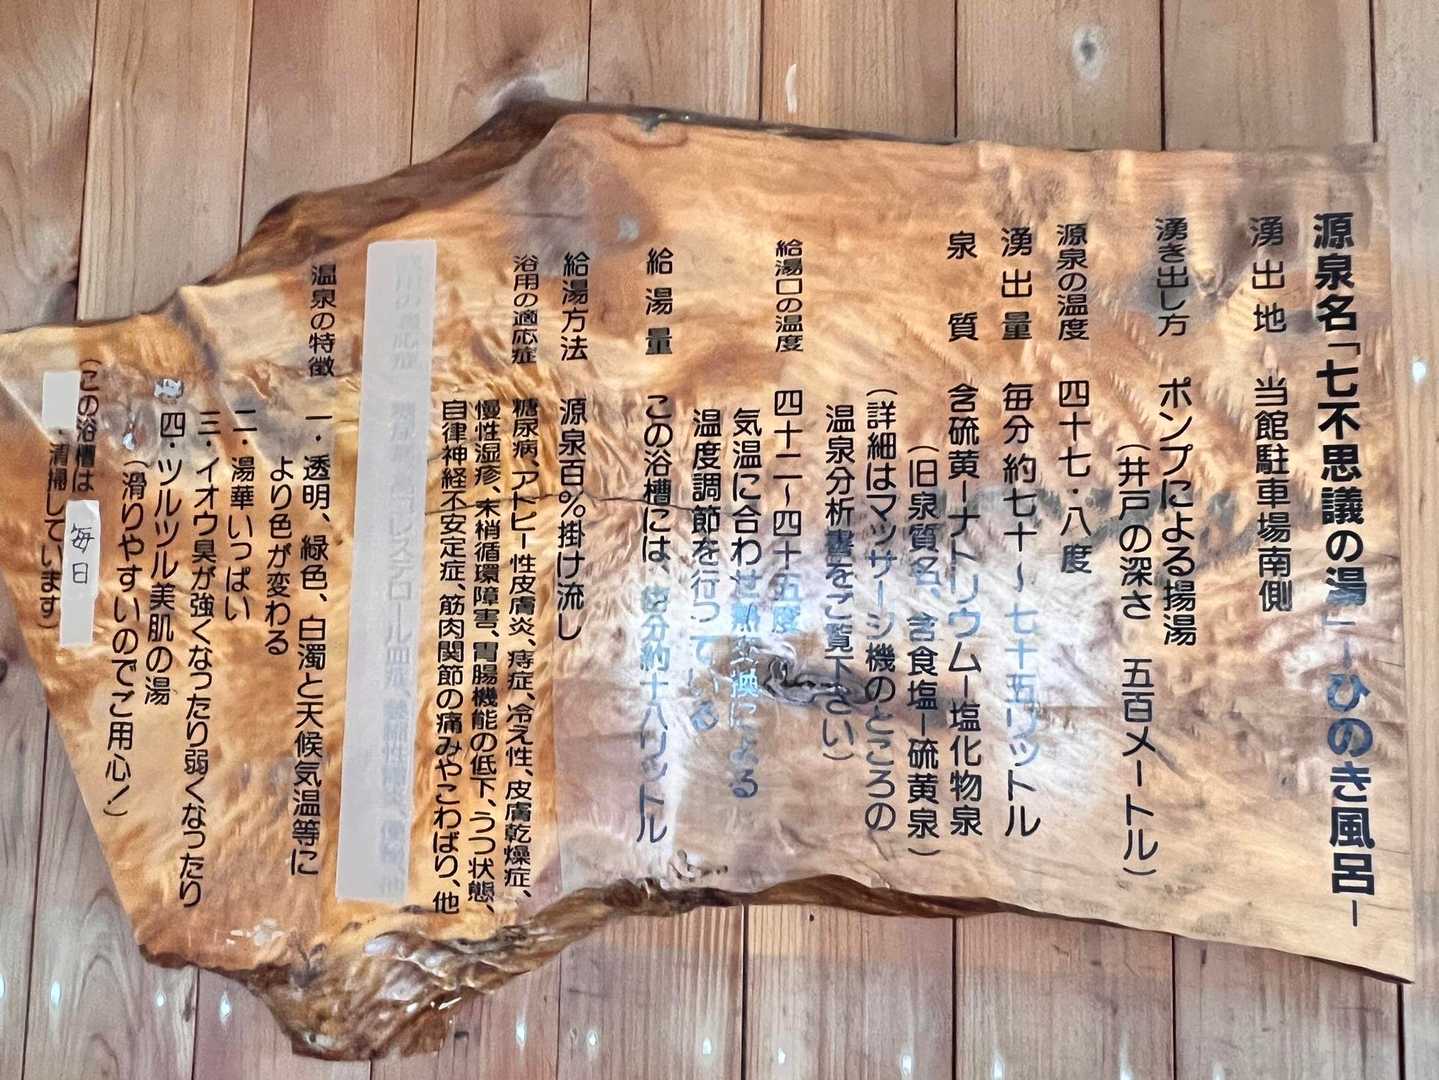 源泉名「七不思議の湯」ーひのき風呂ー
湧出地 当館駐車場南側
湧き出し方 ポンプによる揚湯
（井戸の深さ 五百メートル）
源泉の温度 四十七・八度
湧出量 毎分約七十～七十五リットル
泉質 含硫黄ーナトリウムー塩化物泉
（旧泉質名、含食塩ー硫黄泉）
（詳細はマッサージ機のところの
温泉分析書をご覧下さい）
給湯口の温度 四十二～四十五度
気温に合わせ熱交換による
温度調節を行っている
給湯量 この浴槽には、毎分約十八リットル
給湯方法 源泉百％掛け流し
浴用の適応症 糖尿病、アトピー性皮膚炎、痔症、冷え性、皮膚乾燥症、
慢性湿疹、末梢循環障害、胃腸機能の低下、うつ状態、
自律神経不安定症、筋肉関節の痛みやこわばり、他
温泉の特徴 一・透明、緑色、白濁と天候気温等に
より色が変わる
二・湯華いっぱい
三・イオウ臭が強くなったり弱くなったり
四・ツルツル美肌の湯
（滑りやすいのでご用心！）
（この浴槽は 毎日
清掃しています）